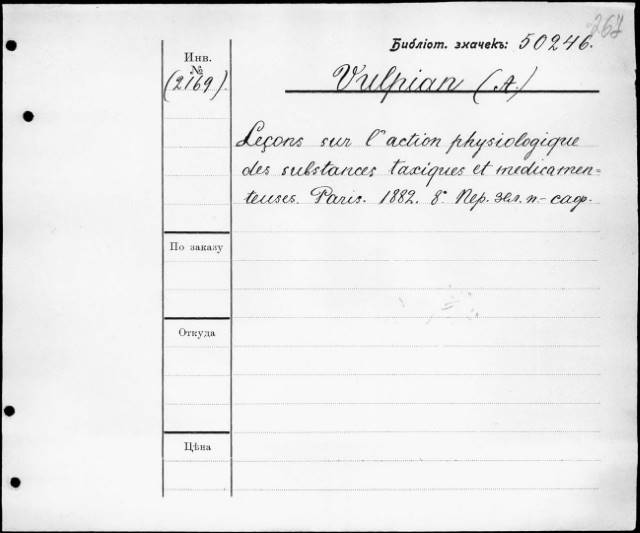 267
Библіот. значекъ: 50246.
Инв.
№
(2169).
Vulpian (A.)
Leçons sur l'action physiologique
des substances taxiques et medicamen=
teuses. Paris. 1882. 8º Пер. зел. п.-саф.
По заказу
Откуда
Цѣна